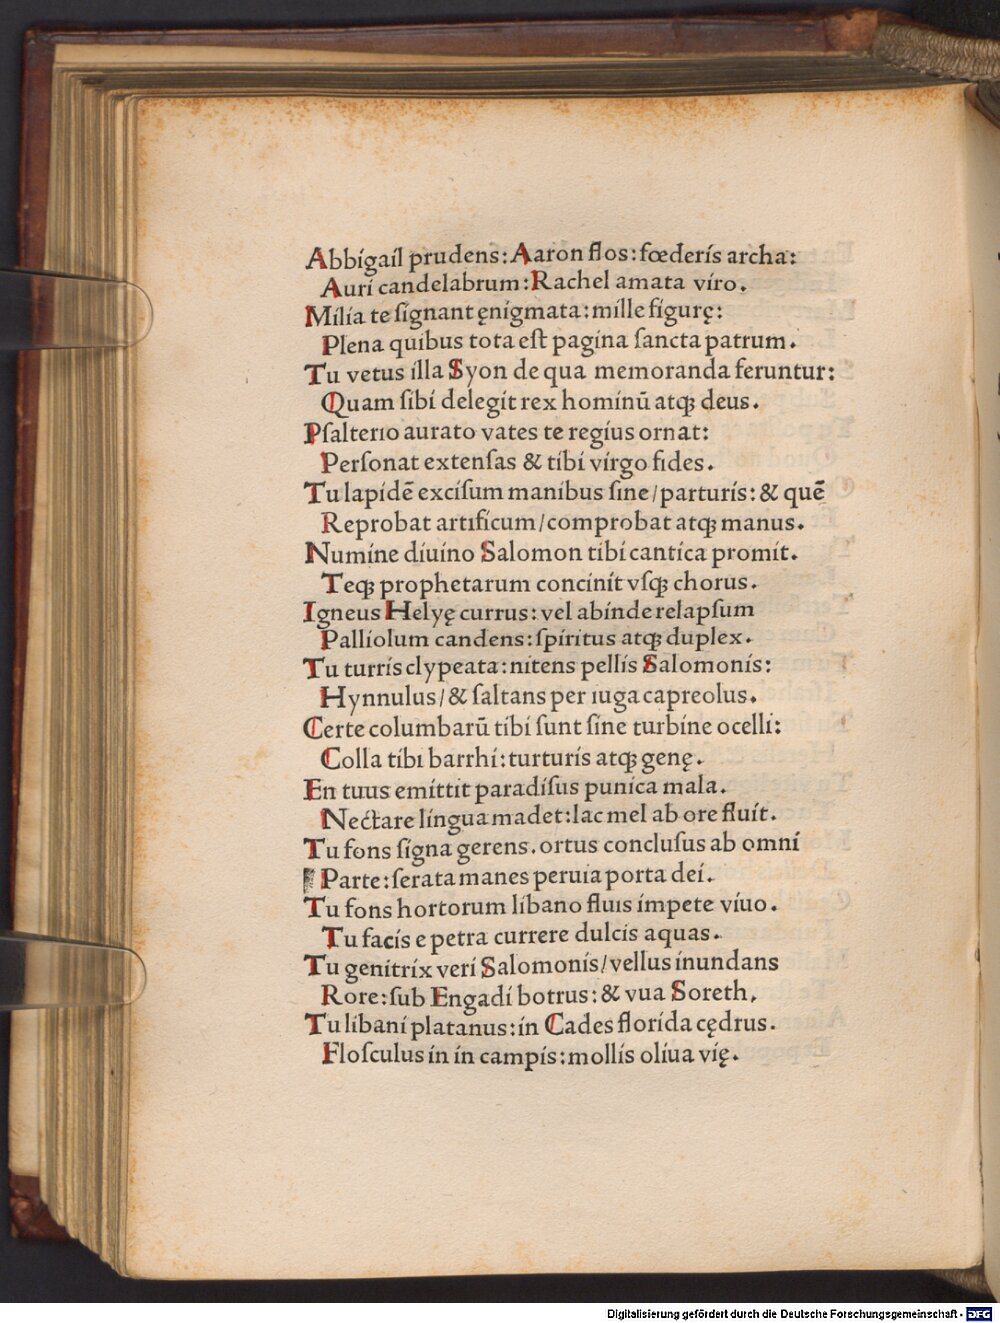 Abbigail prudens: Aaron flos: fœderis archa:
Auri candelabrum: Rachel amata viro.
Milia te ſignant ęnigmata: mille figurę:
Plena quibus tota eſt pagina ſancta patrum.
Tu vetus illa Syon de qua memoranda feruntur:
Quam ſibi delegit rex hominū atqꝫ deus.
Pſalterio aurato vates te regius ornat:
Perſonat extenſas & tibi virgo fides.
Tu lapidē exciſum manibus ſine/parturis: & quē
Reprobat artificum/comprobat atqꝫ manus.
Numine diuino Salomon tibi cantica promit.
Teqꝫ prophetarum concinit vſqꝫ chorus.
Igneus Helyę currus: vel abinde relapſum
Palliolum candens: ſpiritus atqꝫ duplex.
Tu turris clypeata: nitens pellis Salomonis:
Hynnulus/& ſaltans per iuga capreolus.
Certe columbarū tibi ſunt ſine turbine ocelli:
Colla tibi barrhi: turturis atqꝫ genę.
En tuus emittit paradiſus punica mala.
Nectare lingua madet: lac mel ab ore fluit.
Tu fons ſigna gerens. ortus concluſus ab omni
Parte: ſerata manes peruia porta dei.
Tu fons hortorum libano fluis impete viuo.
Tu facis e petra currere dulcis aquas.
Tu genitrix veri Salomonis/vellus inundans
Rore: ſub Engadi botrus: & vua Soreth.
Tu libani platanus: in Cades florida cędrus.
Floſculus in in campis: mollis oliua vię.
Digitalisierung gefördert durch die Deutsche Forschungsgemeinschaft - DFG